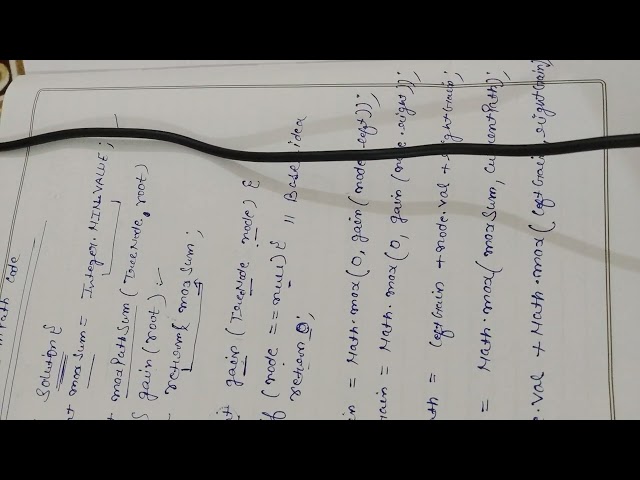 mPath code
Solution{
nt maxSum = Integer.MIN_VALUE;
t maxPathSum (TreeNode root)
gain (root)
return maxSum;
gain (TreeNode node) {
if (node == null) { // Base idea
return 0;
ain = Math.max (0, gain (node.left));
ain = Math.max (0, gain (node.right));
ath = leftGain + node.val + rightGain;
= Math.max (maxSum, currentPath);
.val + Math.max (leftGain, rightGain)